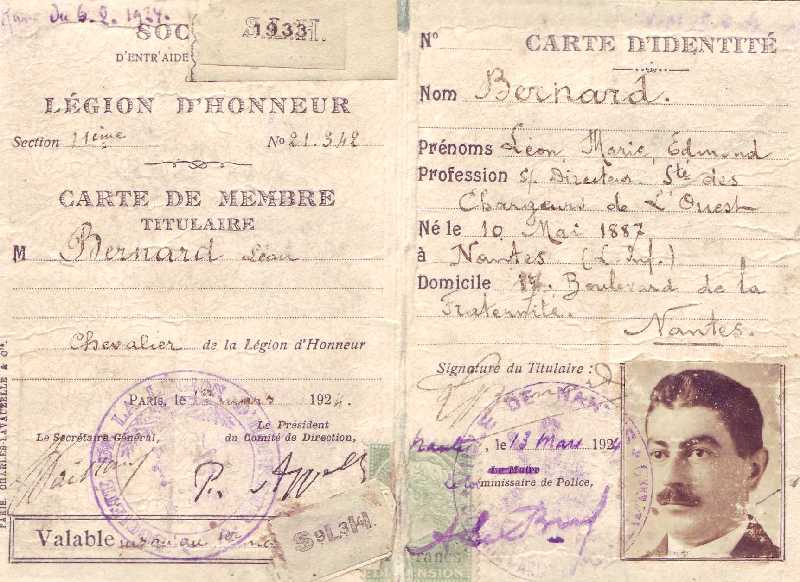 du 6. 2. 1924.
SOC
D'ENTR'AIDE
1933
S.L.H.
LÉGION D'HONNEUR
Section 11ème No 21.342
CARTE DE MEMBRE
TITULAIRE
M Bernard Léon
Chevalier de la Légion d'Honneur
PARIS, le mars 1924.
Le Secrétaire Général,
Le Président
du Comité de Direction,
P. Appell
Valable jusqu'au 1er
SoL3H.
PARIS. CHARLES-LAVAUZELLE & Cie
N° CARTE D'IDENTITÉ
Nom Bernard.
Prénoms Léon, Marie, Edmond
Profession s/ Directeur Sté des
Chargeurs de L'Ouest
Né le 10 Mai 1887
à Nantes (L. Inf.)
Domicile 17, Boulevard de la
Fraternité.
Nantes.
Signature du Titulaire :
DE NAN
Nantes, le 13 Mars 1924
Le Maire
Le Commissaire de Police,